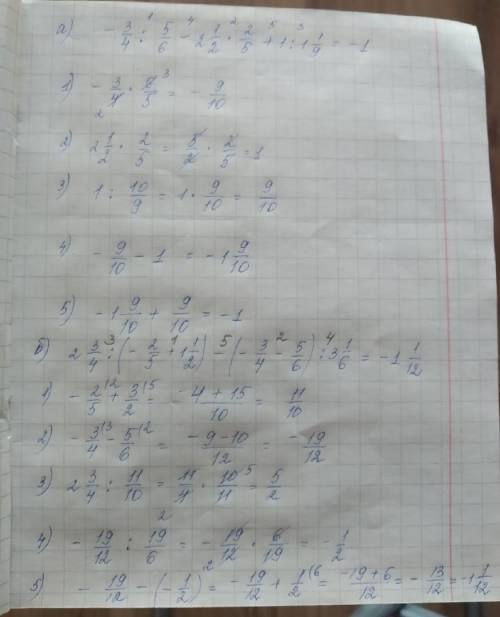 а) - 3/4 : 5/6 - 2 1/2 · 2/5 + 1 : 1 1/9 = -1
1) - 3/4 · 6/5 = - 9/10
2) 2 1/2 · 2/5 = 5/2 · 2/5 = 1
3) 1 : 10/9 = 1 · 9/10 = 9/10
4) - 9/10 - 1 = -1 9/10
5) -1 9/10 + 9/10 = -1
б) 2 3/4 : (- 2/5 + 1 1/2) - (- 3/4 - 5/6) : 3 1/6 = -1 1/12
1) - 2/5 + 3/2 = -4+15/10 = 11/10
2) - 3/4 - 5/6 = -9-10/12 = -19/12
3) 2 3/4 : 11/10 = 11/4 · 10/11 = 5/2
4) - 19/12 : 19/6 = - 19/12 · 6/19 = - 1/2
5) - 19/12 - (- 1/2) = - 19/12 + 1/2 = -19+6/12 = - 13/12 = -1 1/12